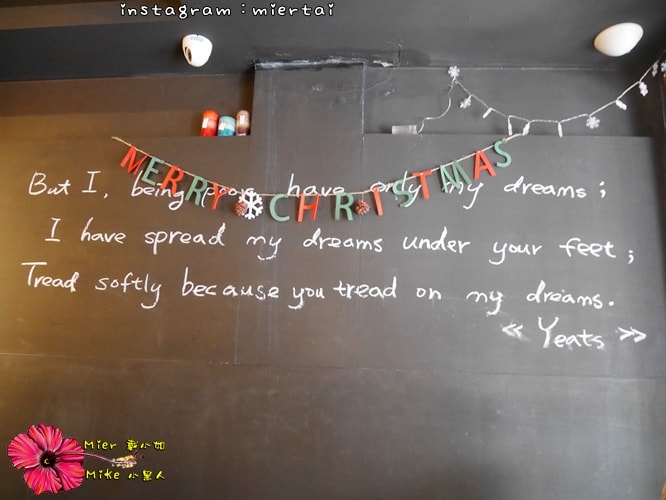 instagram：miertai
MERRY CHRISTMAS
But I, being poor, have only my dreams;
I have spread my dreams under your feet;
Tread softly because you tread on my dreams.
≪ Yeats ≫
Mier 戴小如
Mike 小黑人